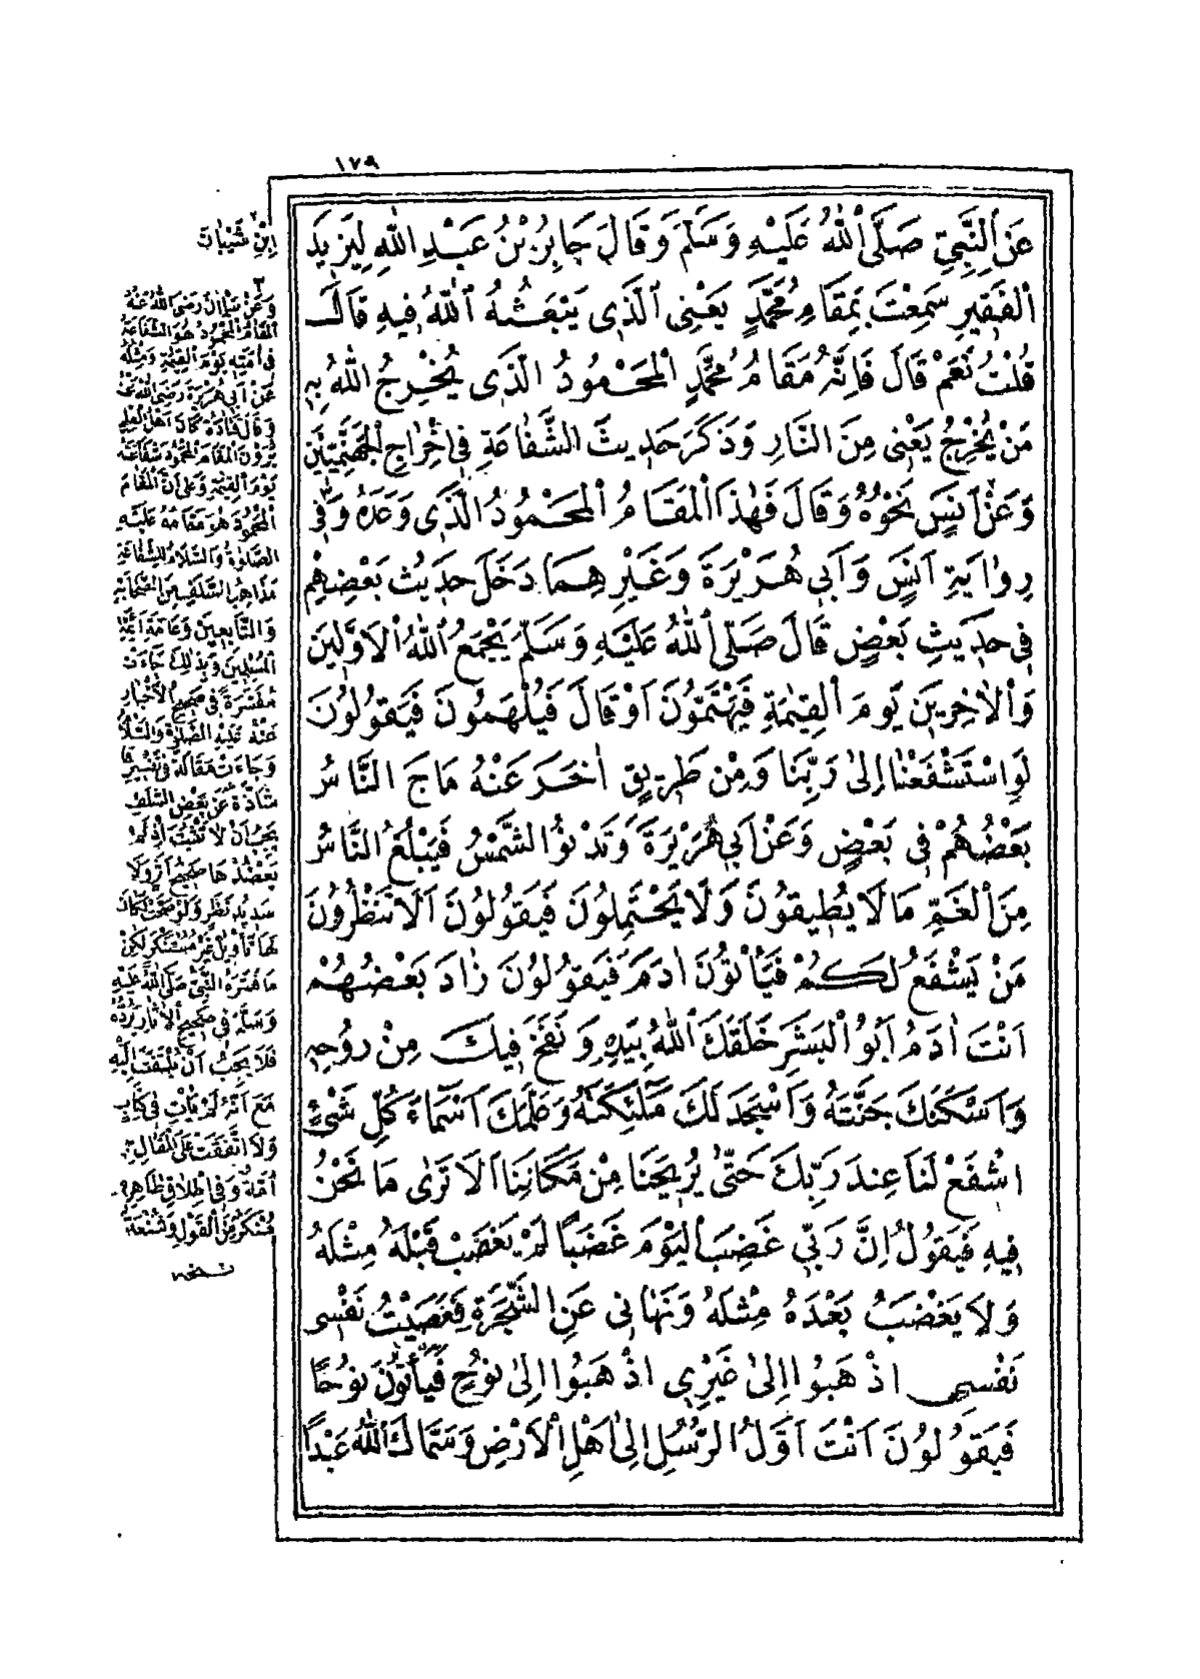 ١٧٩
عَنِ النَّبِيِّ صَلَّى اللهُ عَلَيْهِ وَسَلَّمَ وَقَالَ جَابِرُ بْنُ عَبْدِ اللهِ لِيَزِيدَ
الْفَقِيرِ سَمِعْتَ بِمَقَامِ مُحَمَّدٍ يَعْنِى الَّذِى يَبْعَثُهُ اللهُ فِيهِ قَالَ
قُلْتُ نَعَمْ قَالَ فَاِنَّهُ مَقَامُ مُحَمَّدٍ الْمَحْمُودُ الَّذِى يُخْرِجُ اللهُ بِهِ
مَنْ يُخْرِجُ يَعْنِى مِنَ النَّارِ وَذَكَرَ حَدِيثَ الشَّفَاعَةِ فِى اِخْرَاجِ الْجَهَنَّمِيِّينَ
وَعَنْ اَنَسٍ نَحْوُهُ وَقَالَ فَهٰذَا الْمَقَامُ الْمَحْمُودُ الَّذِى وَعَدَهُ وَفِى
رِوَايَةِ اَنَسٍ وَاَبِى هُرَيْرَةَ وَغَيْرِهِمَا دَخَلَ حَدِيثُ بَعْضِهِمْ
فِى حَدِيثِ بَعْضٍ قَالَ صَلَّى اللهُ عَلَيْهِ وَسَلَّمَ يَجْمَعُ اللهُ الْاَوَّلِينَ
وَالْاٰخِرِينَ يَوْمَ الْقِيٰمَةِ فَيَهْتَمُّونَ اَوْ قَالَ فَيُلْهَمُونَ فَيَقُولُونَ
لَوِ اسْتَشْفَعْنَا اِلٰى رَبِّنَا وَمِنْ طَرِيقٍ اٰخَرَ عَنْهُ مَاجَ النَّاسُ
بَعْضُهُمْ فِى بَعْضٍ وَعَنْ اَبِى هُرَيْرَةَ وَتَدْنُوا الشَّمْسُ فَيَبْلُغُ النَّاسُ
مِنَ الْغَمِّ مَا لَا يُطِيقُونَ وَلَا يَحْتَمِلُونَ فَيَقُولُونَ اَلَا تَنْظُرُونَ
مَنْ يَشْفَعُ لَكُمْ فَيَأْتُونَ اٰدَمَ فَيَقُولُونَ زَادَ بَعْضُهُمْ
اَنْتَ اٰدَمُ اَبُو الْبَشَرِ خَلَقَكَ اللهُ بِيَدِهِ وَنَفَخَ فِيكَ مِنْ رُوحِهِ
وَاَسْكَنَكَ جَنَّتَهُ وَاَسْجَدَ لَكَ مَلٰئِكَتَهُ وَعَلَّمَكَ اَسْمَاءَ كُلِّ شَىْءٍ
اشْفَعْ لَنَا عِنْدَ رَبِّكَ حَتّٰى يُرِيحَنَا مِنْ مَكَانِنَا اَلَا تَرٰى مَا نَحْنُ
فِيهِ فَيَقُولُ اِنَّ رَبِّى غَضِبَ الْيَوْمَ غَضَبًا لَمْ يَغْضَبْ قَبْلَهُ مِثْلَهُ
وَلَا يَغْضَبُ بَعْدَهُ مِثْلَهُ وَنَهَانِى عَنِ الشَّجَرَةِ فَعَصَيْتُ نَفْسِى
نَفْسِى اذْهَبُوا اِلٰى غَيْرِى اذْهَبُوا اِلٰى نُوحٍ فَيَأْتُونَ نُوحًا
فَيَقُولُونَ اَنْتَ اَوَّلُ الرُّسُلِ اِلٰى اَهْلِ الْاَرْضِ وَسَمَّاكَ اللهُ عَبْدًا
اِبْنِ شَيْبَانَ
٢
وَعَنْ سَلْمَانَ رَضِىَ اللهُ عَنْهُ
الْمَقَامُ الْمَحْمُودُ هُوَ الشَّفَاعَةُ
فِى اُمَّتِهِ يَوْمَ الْقِيٰمَةِ وَمِثْلُهُ
عَنْ اَبِى هُرَيْرَةَ رَضِىَ اللهُ عَنْهُ
وَقَالَ قَتَادَةُ كَانَ اَهْلُ الْعِلْمِ
يُرَوْنَ الْمَقَامَ الْمَحْمُودَ شَفَاعَتَهُ
يَوْمَ الْقِيٰمَةِ وَعَلٰى اَنَّ الْمَقَامَ
الْمَحْمُودَ هُوَ مَقَامُهُ عَلَيْهِ
الصَّلٰوةُ وَالسَّلَامُ لِلشَّفَاعَةِ
مَذَاهِبُ السَّلَفِ مِنَ الصَّحَابَةِ
وَالتَّابِعِينَ وَعَامَّةِ اَئِمَّةِ
الْمُسْلِمِينَ وَبِذٰلِكَ جَاءَتْ
مُفَسَّرَةً فِى صَحِيحِ الْاَخْبَارِ
عَنْهُ عَلَيْهِ الصَّلٰوةُ وَالسَّلَامُ
وَجَاءَتْ مَقَالَةٌ فِى تَفْسِيرِهَا
شَاذَّةٌ عَنْ بَعْضِ السَّلَفِ
يَجِبُ اَنْ لَا تَثْبُتَ اِذْ لَمْ
يَعْضُدْهَا صَحِيحُ اَثَرٍ وَلَا
سَدِيدُ نَظَرٍ وَلَوْ صَحَّتْ لَكَانَ
لَهَا تَأْوِيلٌ غَيْرُ مُسْتَنْكَرٍ لٰكِنْ
مَا فَسَّرَهُ النَّبِىُّ صَلَّى اللهُ عَلَيْهِ
وَسَلَّمَ فِى صَحِيحِ الْاٰثَارِ يَرُدُّهُ
فَلَا يَجِبُ اَنْ يُلْتَفَتَ اِلَيْهِ
مَعَ اَنَّهُ لَمْ يَأْتِ فِى كِتَابٍ
وَلَا اتَّفَقَتْ عَلَى الْمَقَالِ بِهِ
اُمَّةٌ وَفِى اِطْلَاقِ ظَاهِرِهِ
مُنْكَرٌ مِنَ الْقَوْلِ وَشُنْعَةٌ
نسخه